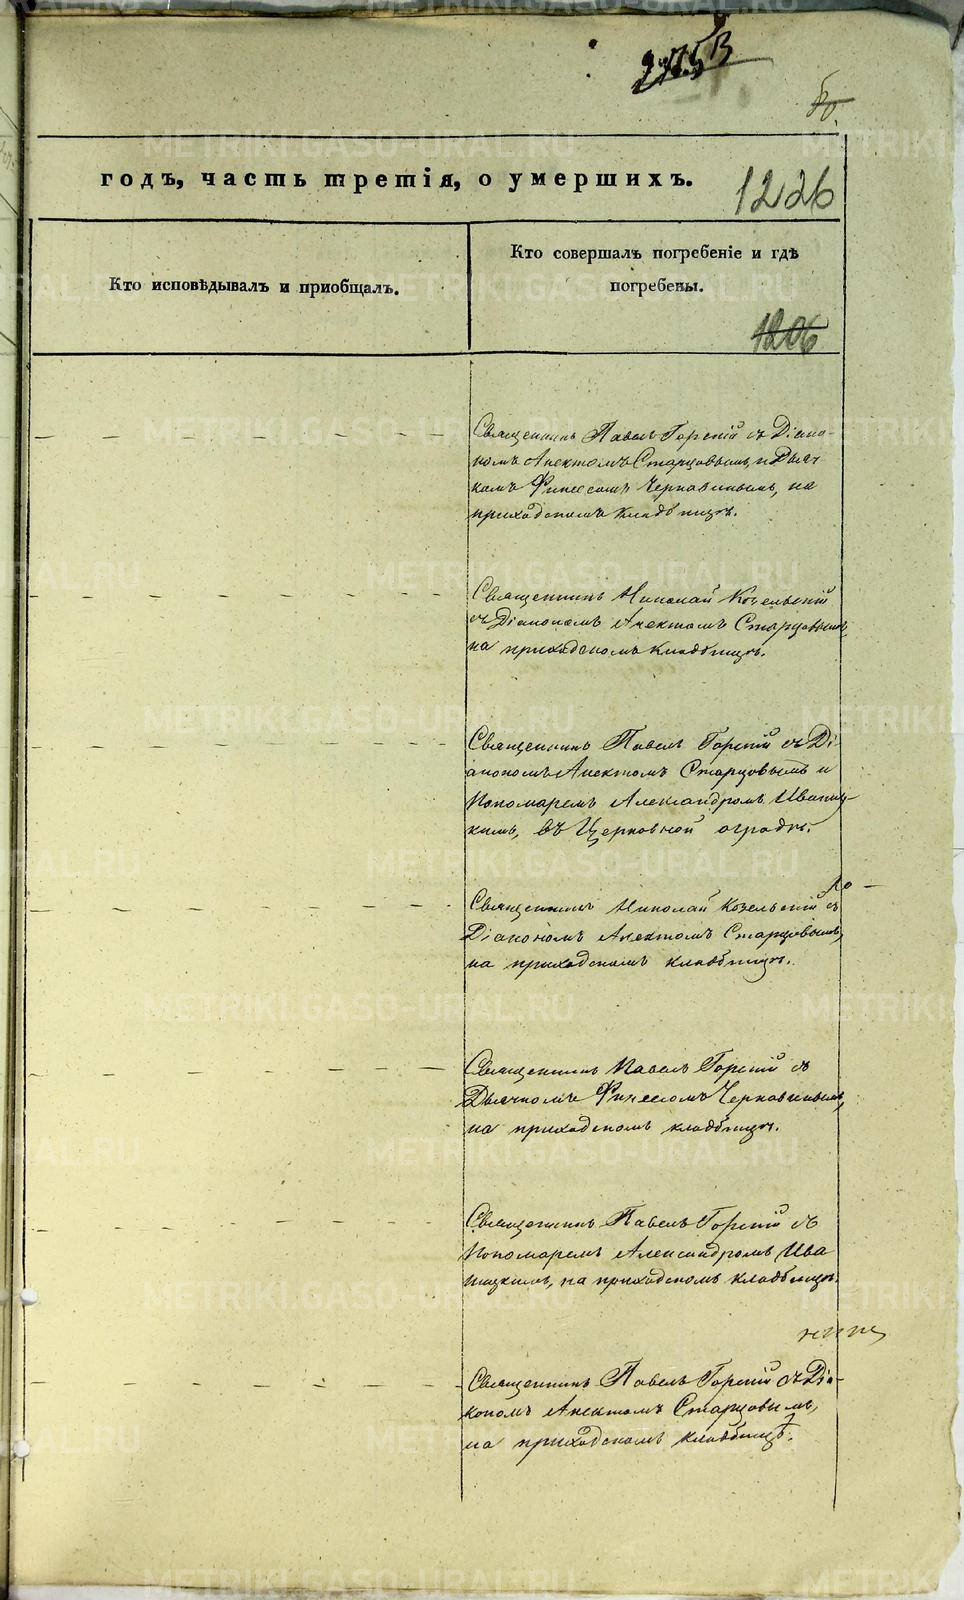 50.
годъ, часть третія, о умершихъ.
1226
Кто исповѣдывалъ и приобщалъ.
Кто совершалъ погребеніе и гдѣ
погребены.
1206
Священникъ Павелъ Горскій съ Діако-
номъ Анектомъ Старцовымъ и Дьяч-
комъ Финеесомъ Чернавинымъ, на
приходскомъ кладбищѣ.
Священникъ Николай Козельскій
съ Діакономъ Анектомъ Старцовымъ,
на приходскомъ кладбищѣ.
Священникъ Павелъ Горскій съ Ді-
акономъ Анектомъ Старцовымъ и
Пономаремъ Александромъ Иваниц-
кимъ, въ Церковной оградѣ.
Священникъ Николай Козельскій съ
Діакономъ Анектомъ Старцовымъ,
на приходскомъ кладбищѣ.
Священникъ Павелъ Горскій съ
Дьячкомъ Финеесомъ Чернавинымъ,
на приходскомъ кладбищѣ.
Священникъ Павелъ Горскій съ
Пономаремъ Александромъ Ива
ницкимъ, на приходскомъ кладбищѣ.
Священникъ Павелъ Горскій съ Діа-
кономъ Анектомъ Старцовымъ,
на приходскомъ кладбищѣ.
METRIKI.GASO-URAL.RU